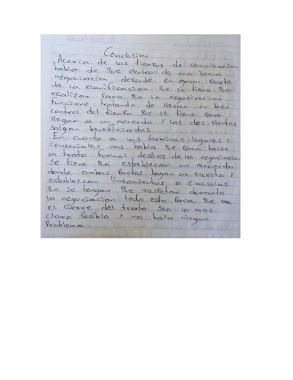 Conclusion
Acerca de los tiempos de comunicacion
habla de que dentro de una buena
negociacion, depende en gran parte
de la planificacion que se tiene que
realizar para que la negociacion
funcione, tratando de llevar un buen
control del tiempo que se tiene para
llegar a un acuerdo y las dos partes
salgan beneficiadas.
En cuanto a los terminos legales y
comerciales, nos habla que para hacer
un trato formal despues de la negociacion
se tiene que establecer un acuerdo
donde ambas partes hagan su
establezcan lineamientos o clausulas
que se tengan que respetar durante
la negociacion todo esto para que en
el cierre del trato sea lo mas
claro posible y no haya ningun
Problema.